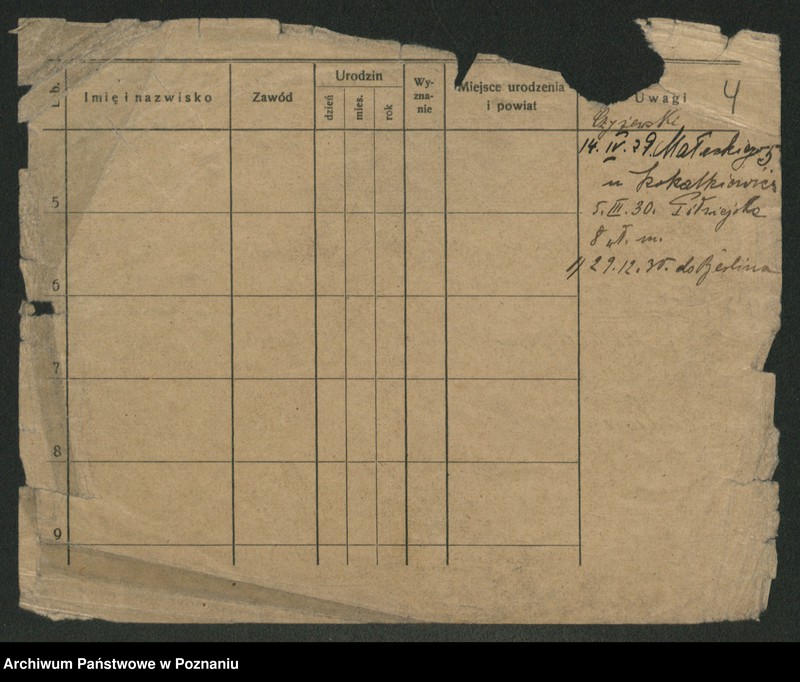 L. b.
Imię i nazwisko
Zawód
Urodzin
dzień
mies.
rok
Wy-
zna-
nie
Miejsce urodzenia
i powiat
Uwagi
4
Czyżewski
14. IV. 29. Małeckiego 5
u
5. III. 30.
8 m.
29.12.30. do Berlina
5
6
7
8
9
Archiwum Państwowe w Poznaniu